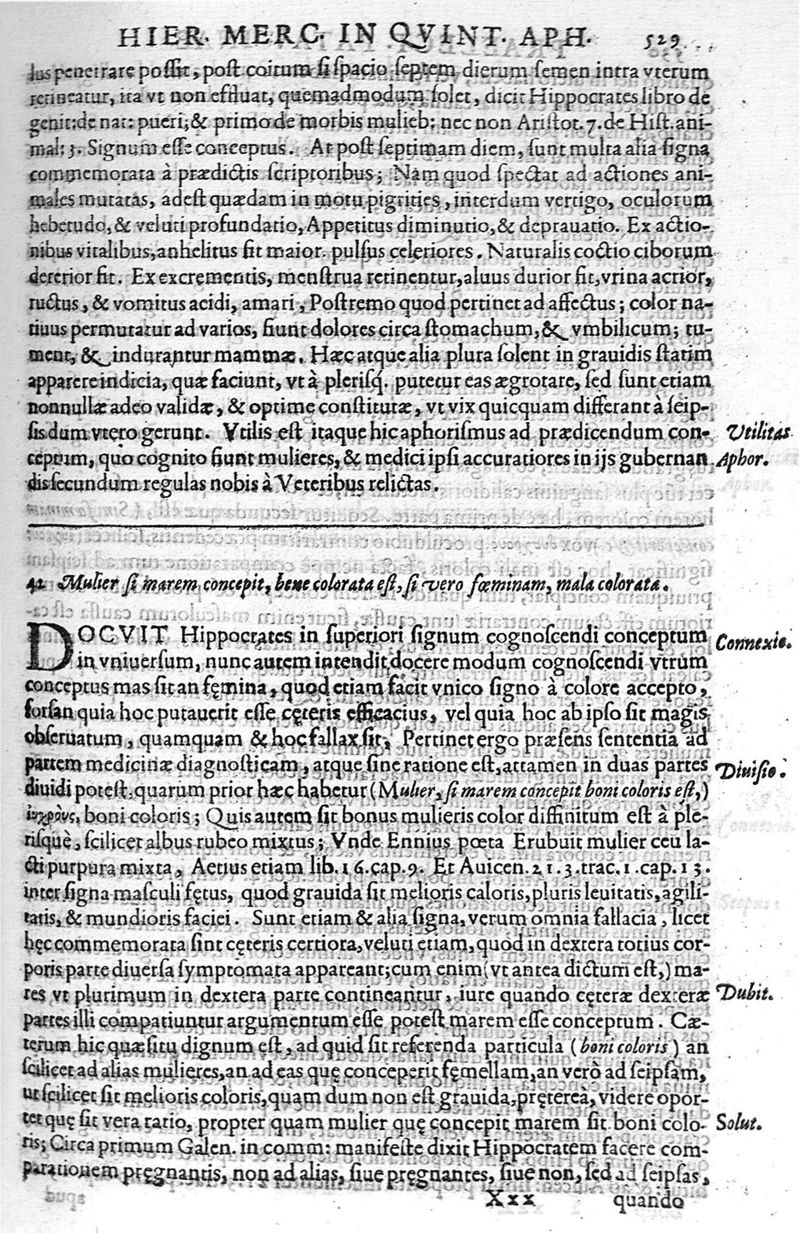 HIER. MERC. IN QVINT. APH. 529
lus penetrare possit, post coitum si spacio septem dierum semen intra vterum
retineatur, ita vt non effluat, quemadmodum solet, dicit Hippocrates libro de
genit: de nat: pueri; & primo de morbis mulieb: nec non Aristot. 7. de Hist. ani-
mal: 3. Signum esse conceptus. At post septimam diem, sunt multa alia signa
commemorata à prædictis scriptoribus; Nam quod spectat ad actiones ani-
males mutatas, adest quædam in motu pigrities, interdum vertigo, oculorum
hebetudo, & veluti profundatio, Appetitus diminutio, & deprauatio. Ex actio-
nibus vitalibus, anhelitus fit maior. pulsus celeriores. Naturalis coctio ciborum
deterior fit. Ex excrementis, menstrua retinentur, aluus durior fit, vrina acrior,
ructus, & vomitus acidi, amari, Postremo quod pertinet ad affectus; color na-
tiuus permutatur ad varios, fiunt dolores circa stomachum, & vmbilicum; tu-
ment, & indurantur mammæ. Hæc atque alia plura solent in grauidis statim
apparere indicia, quæ faciunt, vt à plerisq. putetur eas ægrotare, sed sunt etiam
nonnullæ adeo validæ, & optime constitutæ, vt vix quicquam differant à seip-
sis dum vtero gerunt. Vtilis est itaque hic aphorismus ad prædicendum con-
ceptum, quo cognito fiunt mulieres, & medici ipsi accuratiores in ijs gubernan
dis secundum regulas nobis à Veteribus relictas.
Utilitas
Aphor.
42 Mulier si marem concepit, bene colorata est, si vero fœminam, mala colorata.
DOCVIT Hippocrates in superiori signum cognoscendi conceptum
in vniuersum, nunc autem intendit docere modum cognoscendi vtrum
conceptus mas sit an fęmina, quod etiam facit vnico signo à colore accepto,
forsan quia hoc putauerit esse cęteris efficacius, vel quia hoc ab ipso sit magis
obseruatum, quamquam & hoc fallax sit, Pertinet ergo præsens sententia ad
partem medicinæ diagnosticam, atque sine ratione est, attamen in duas partes
diuidi potest, quarum prior hæc habetur (Mulier, si marem concepit boni coloris est,)
ἐυχρούς, boni coloris; Quis autem sit bonus mulieris color diffinitum est à ple-
risquè, scilicet albus rubeo mixtus; Vnde Ennius poeta Erubuit mulier ceu la-
cti purpura mixta, Aetius etiam lib. 16. cap. 9. Et Auicen. 21. 3. trac. 1. cap. 13.
inter signa masculi fętus, quod grauida sit melioris caloris, pluris leuitatis, agili-
tatis, & mundioris faciei. Sunt etiam & alia signa, verum omnia fallacia, licet
hęc commemorata sint cęteris certiora, veluti etiam, quod in dextera totius cor-
poris parte diuersa symptomata appareant; cum enim (vt antea dictum est,) ma-
res vt plurimum in dextera parte contineantur, iure quando cęteræ dexteræ
partes illi compatiuntur argumentum esse potest marem esse conceptum. Cæ-
terum hic quæsitu dignum est, ad quid sit referenda particula (boni coloris) an
scilicet ad alias mulieres, an ad eas quę conceperit fęmellam, an verò ad seipsam,
ut scilicet sit melioris coloris, quam dum non est grauida, prętereà, videre opor-
tet quę sit vera ratio, propter quam mulier quę concepit marem sit boni colo-
ris; Circa primum Galen. in comm: manifeste dixit Hippocratem facere com-
parationem pręgnantis, non ad alias, siue pręgnantes, siue non, sed ad seipsas,
Connexio.
Diuisio.
Dubit.
Solut.
Xxx quando